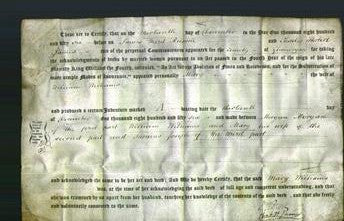 These are to Certify, that on the thirtieth day of December in the Year One thousand eight hundred
and fifty six before us
James two of the perpetual Commissioners appointed for the County of Glamorgan for taking
the acknowledgments of deeds by married women pursuant to an Act passed in the Fourth Year of the reign of his late
Majesty King William the Fourth, intituled "An Act for the Abolition of Fines and Recoveries, and for the Substitution of
more simple Modes of Assurance," appeared personally Mary the wife of
William Williams
and produced a certain Indenture marked A bearing date the thirtieth day
of December one thousand eight hundred and fifty six and made between Morgan Morgan
of the first part William Williams and Mary his wife of the
second part and Thomas of the third part
and acknowledged the same to be her act and deed. And We do hereby Certify, that the said Mary Williams
was, at the time of her acknowledging the said deed of full age and competent understanding, and that
she was examined by us apart from her husband, touching her knowledge of the contents of the said deed, and that she freely
and voluntarily consented to the same.